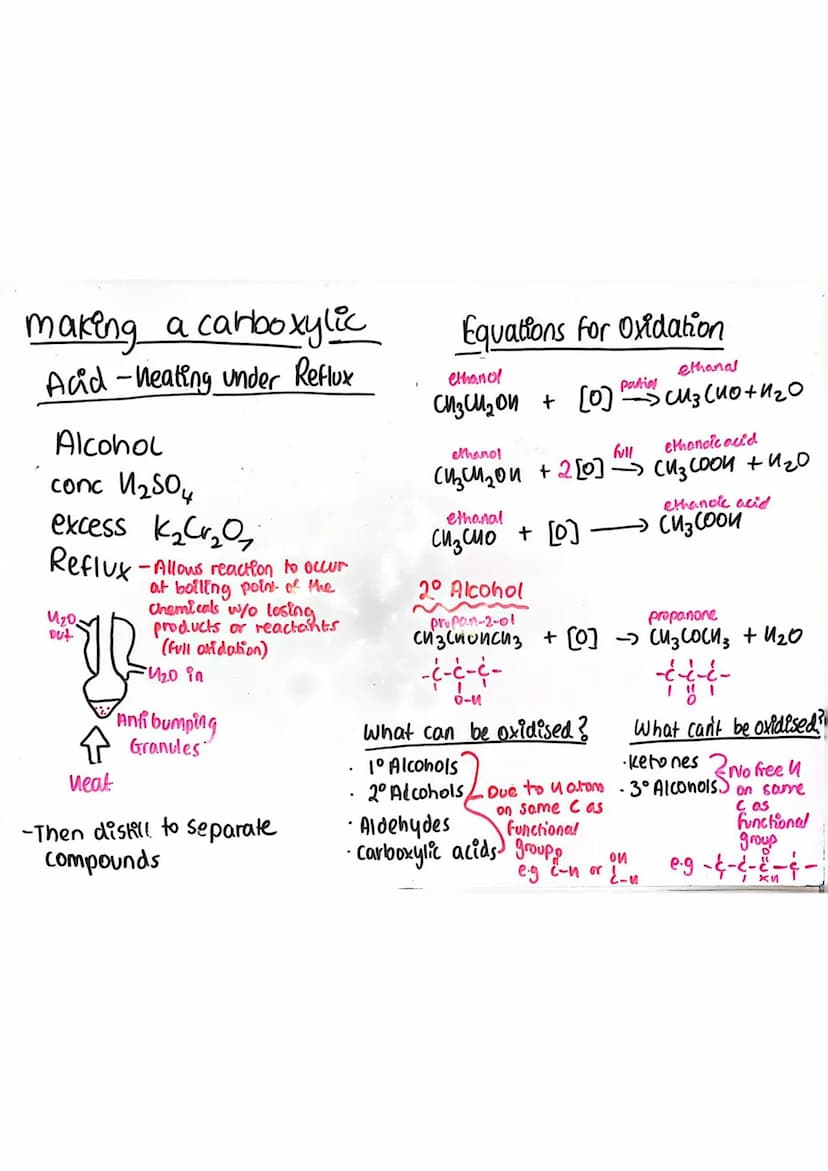 Making a carboxylic
Acid - Heating under Reflux
Alcohol
conc H₂SO₄
excess K₂Cr₂O₇
Reflux - Allows reaction to occur
at boiling point of the
chemicals w/o losing
products or reactants
(full oxidation)
H₂O
out
H₂O in
Anti bumping
Granules
Heat
- Then distill to separate
compounds
Equations for Oxidation
ethanol partial ethanal
CH₃CH₂OH + [O] → CH₃CHO + H₂O
ethanol full ethanoic acid
CH₃CH₂OH + 2[O] → CH₃COOH + H₂O
ethanal ethanoic acid
CH₃CHO + [O] → CH₃COOH
2° Alcohol
propan-2-ol propanone
CH₃CHOHCH₃ + [O] → CH₃COCH₃ + H₂O
-C-C-C- -C-C-C-
O-H O
What can be oxidised?
· 1° Alcohols
· 2° Alcohols
· Aldehydes
· Carboxylic acids
Due to H atom
on same C as
functional
group
e.g C-H or OH
C-H
What can't be oxidised?
· Ketones
· 3° Alcohols
No free H
on same
C as
functional
group
e.g -C-C-C-C-
O
XH